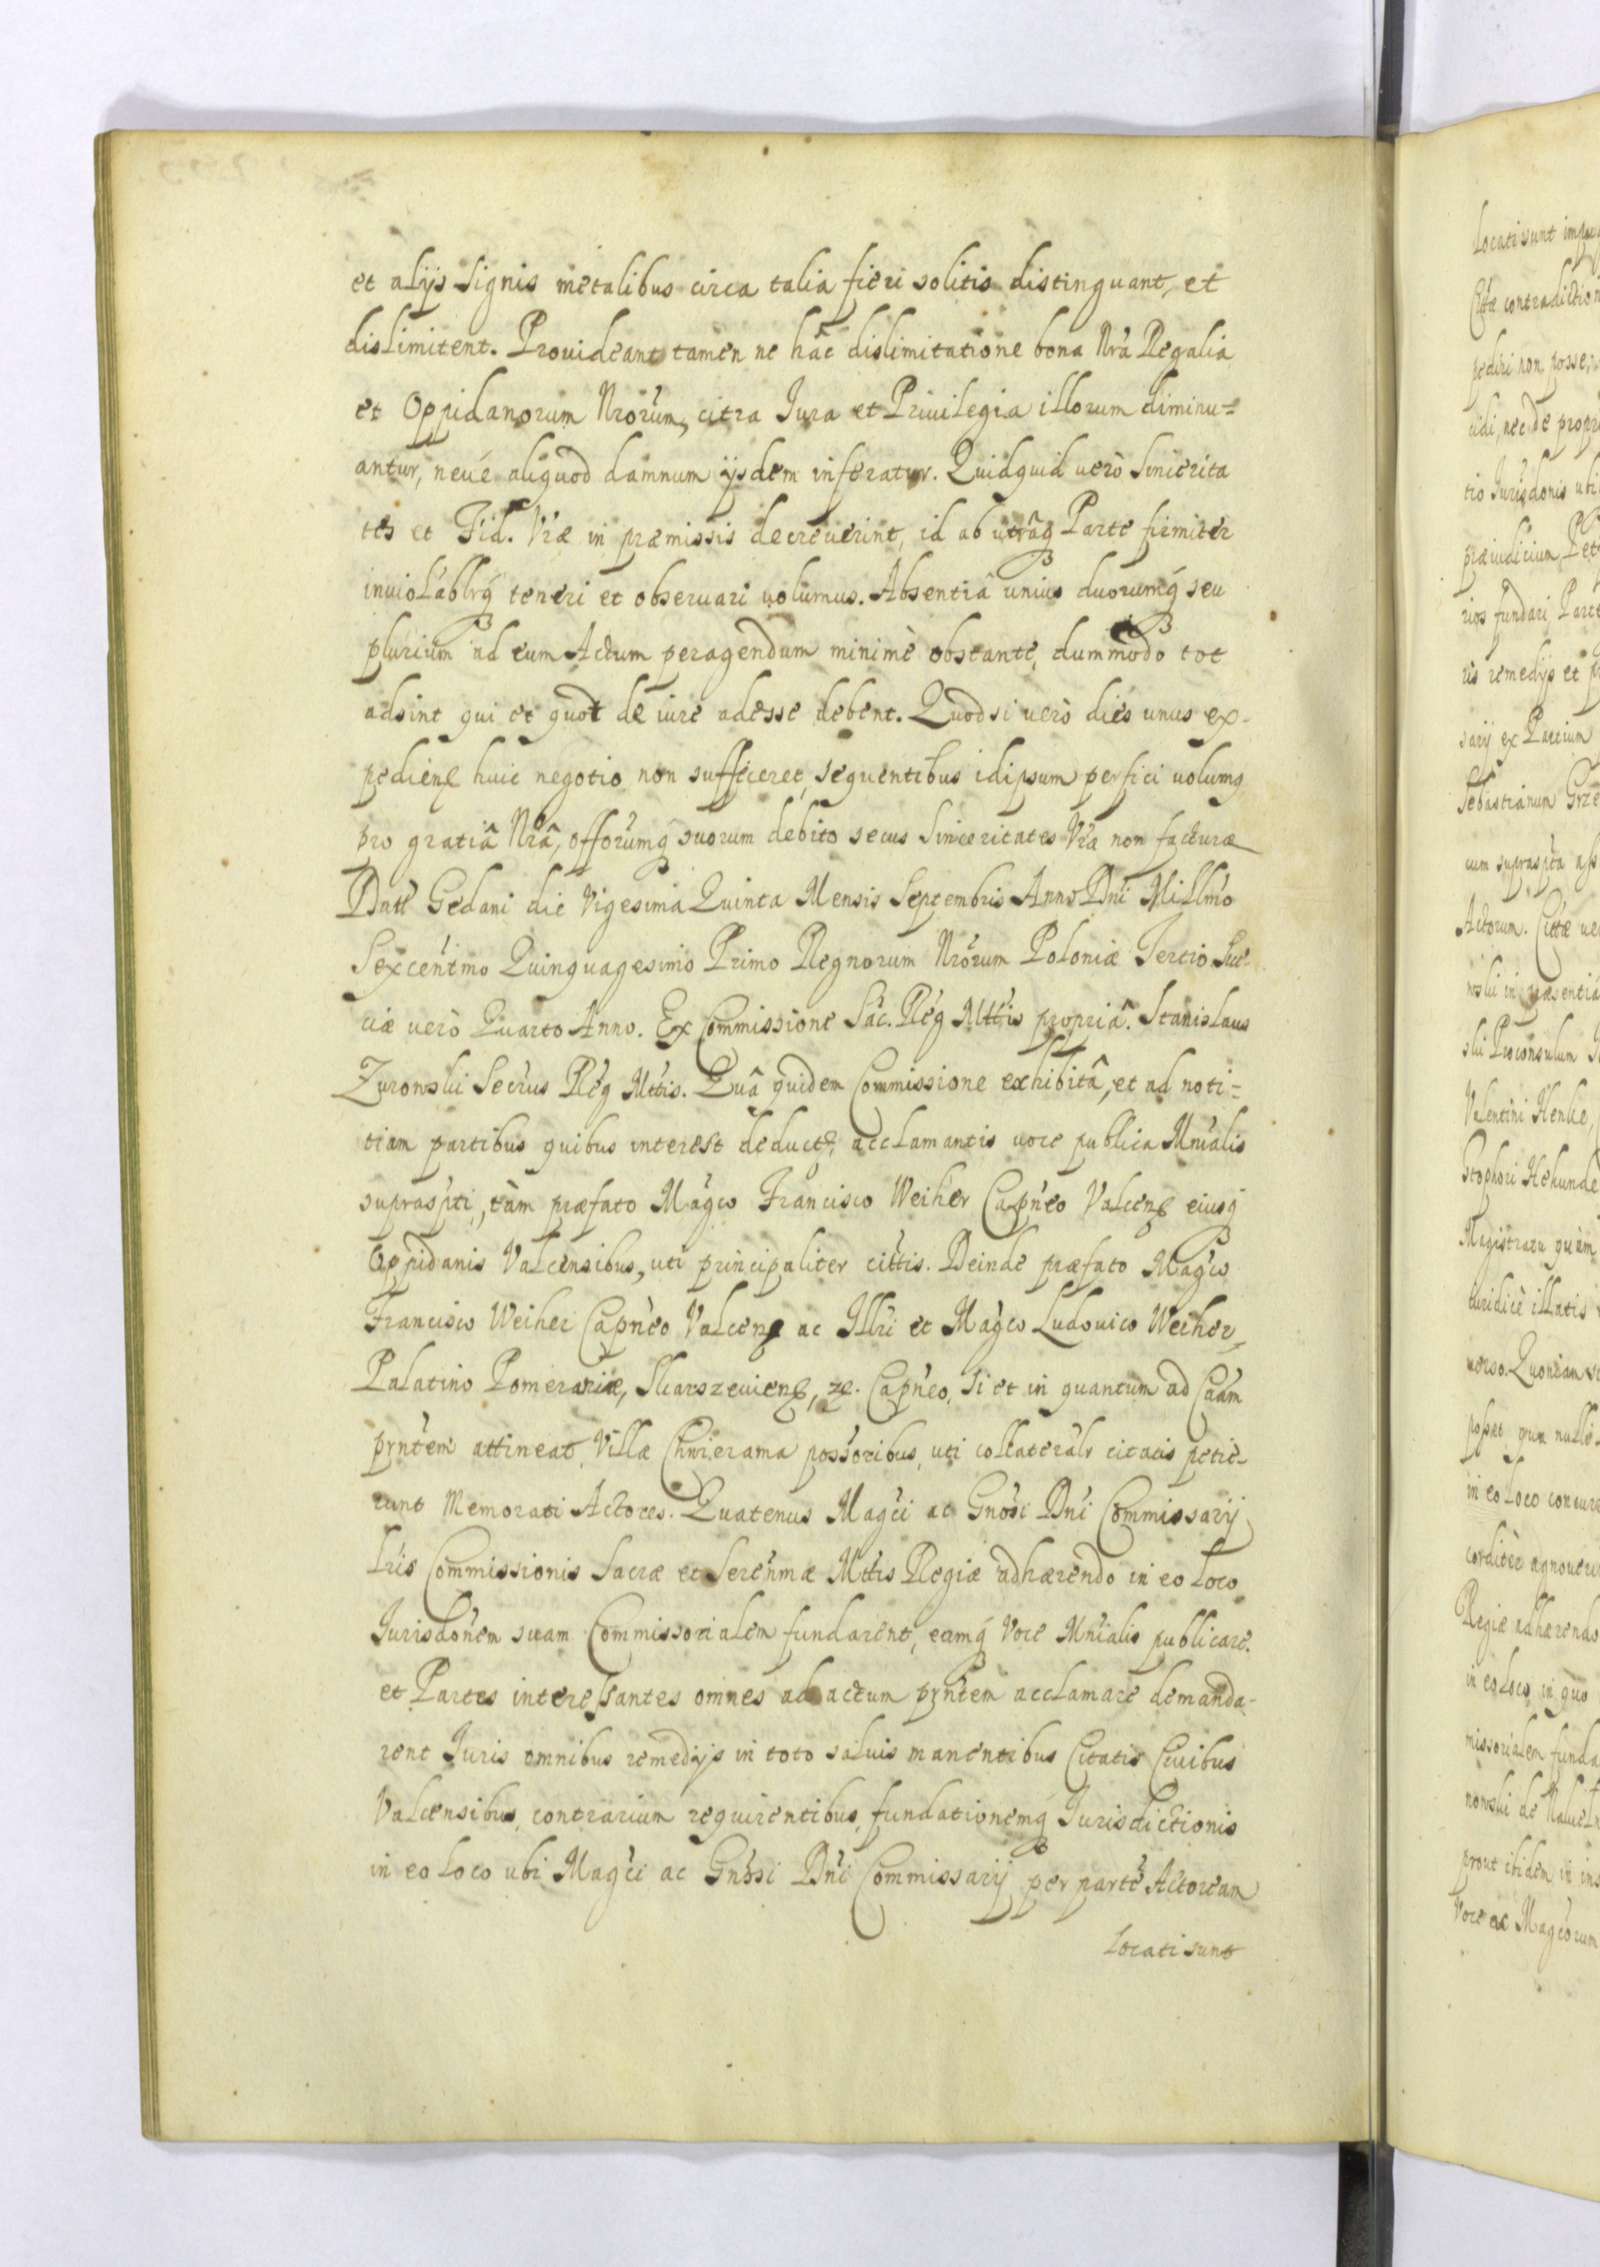 et alijs signis metalibus circa talia fieri solitis distinguant, et
dislimitent. Prouideant tamen ne hâc dislimitatione bona Nra Regalia
et Oppidanorum Nrorum, citra Iura et Priuilegia illorum diminu=
antur, neué aliquod damnum ijsdem inferatur. Quidquid verò Sincerita
tes et Fid. Vræ in præmissis decreuerint, id ab utrâq Parte firmiter
inuiolablrq teneri et obseruari uolumus. Absentiâ unius duorumq seu
plurium ad eum Actum peragendum minimè obstante, dummodo tot
adsint qui et quot de iure adesse debent. Quodsi verò dies unus ex-
pedien huic negotio non sufficeret, sequentibus idipsum perfici uolumq
pro gratiâ Nrâ, offorumq suorum debito secus Sinceritates Vra non facturæ
Datt Gedani die Vigesima Quinta Mensis Septembris Anno Dni Millmo
Sexcentmo Quinquagesimo Primo Regnorum Nrorum Poloniæ Tertio Sue-
ciæ verò Quarto Anno. Ex Commissione Sac. Reg Mttis propriâ. Stanislaus
Zuronskii Secrus Reg Mttis. Quâ quidem Commissione exhibitâ, et ad noti=
tiam partibus quibus interest deductâ, acclamantis uoce publica Mnialis
supraspti, tàm præfato Magco Francisco Weiher Capneo Valcen eiusq
Oppidanis Valcensibus, uti principaliter cittis. Deinde præfato Magco
Francisco Weiher Capneo Valcen ac Illri et Magco Ludouico Weiher
Palatino Pomeraniæ, Skarszeuien, ze. Capneo, si et in quantum ad Caam
pntem attineat, Villæ Chwierama possoribus, uti collateralr citatis petie-
runt Memorati Actores. Quatenus Magci ac Gnosi Dni Commissarij
Lris Commissionis Sacræ et Serenmæ Mttis Regiæ adhærendo in eo loco
Jurisdonem suam Commissorialem fundarent, eamq Voce Mnialis publicare
et Partes interessantes omnes ad actum pntem acclamare demanda-
rent Juris omnibus remedijs in toto saluis manentibus Citatis Ciuibus
Valcensibus, contrarium requirentibus, fundationemq Jurisdictionis
in eo loco ubi Magci ac Gnosi Dni Commissarij per parte Actoream
Locati sunt
Locati sunt
contradiction
pediri non posse,
nec de
tio Jurisdonis ubi
præiudicium, Pet
rios fundari Part
ris remedijs et
sarij ex Partium
Sebastianum
cum supraspta
Actorum. Cittæ
in præsentia
Proconsulum
Valentini Henke,
Magistratu quàm
iuridicè illatis
uerso. Quoniam
posset
in eo loco
corditer agnouer
Regiæ adhærendo
in eo Loco, in quo
missorialem funda
prout ibidem in
Voce ac Magcorum